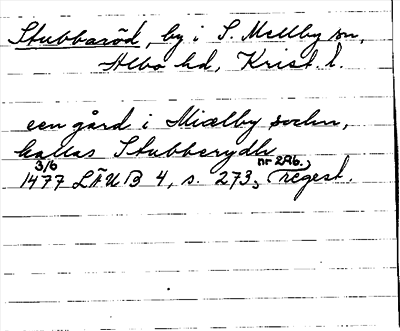 Stubbaröd, by i S. Mellby sn,
Albo hd, Krist. l.
een gård i Miælby sochn,
kallas Stubberydh
3/6 nr 296.,
1477 LÄUB 4, s. 273, regest.